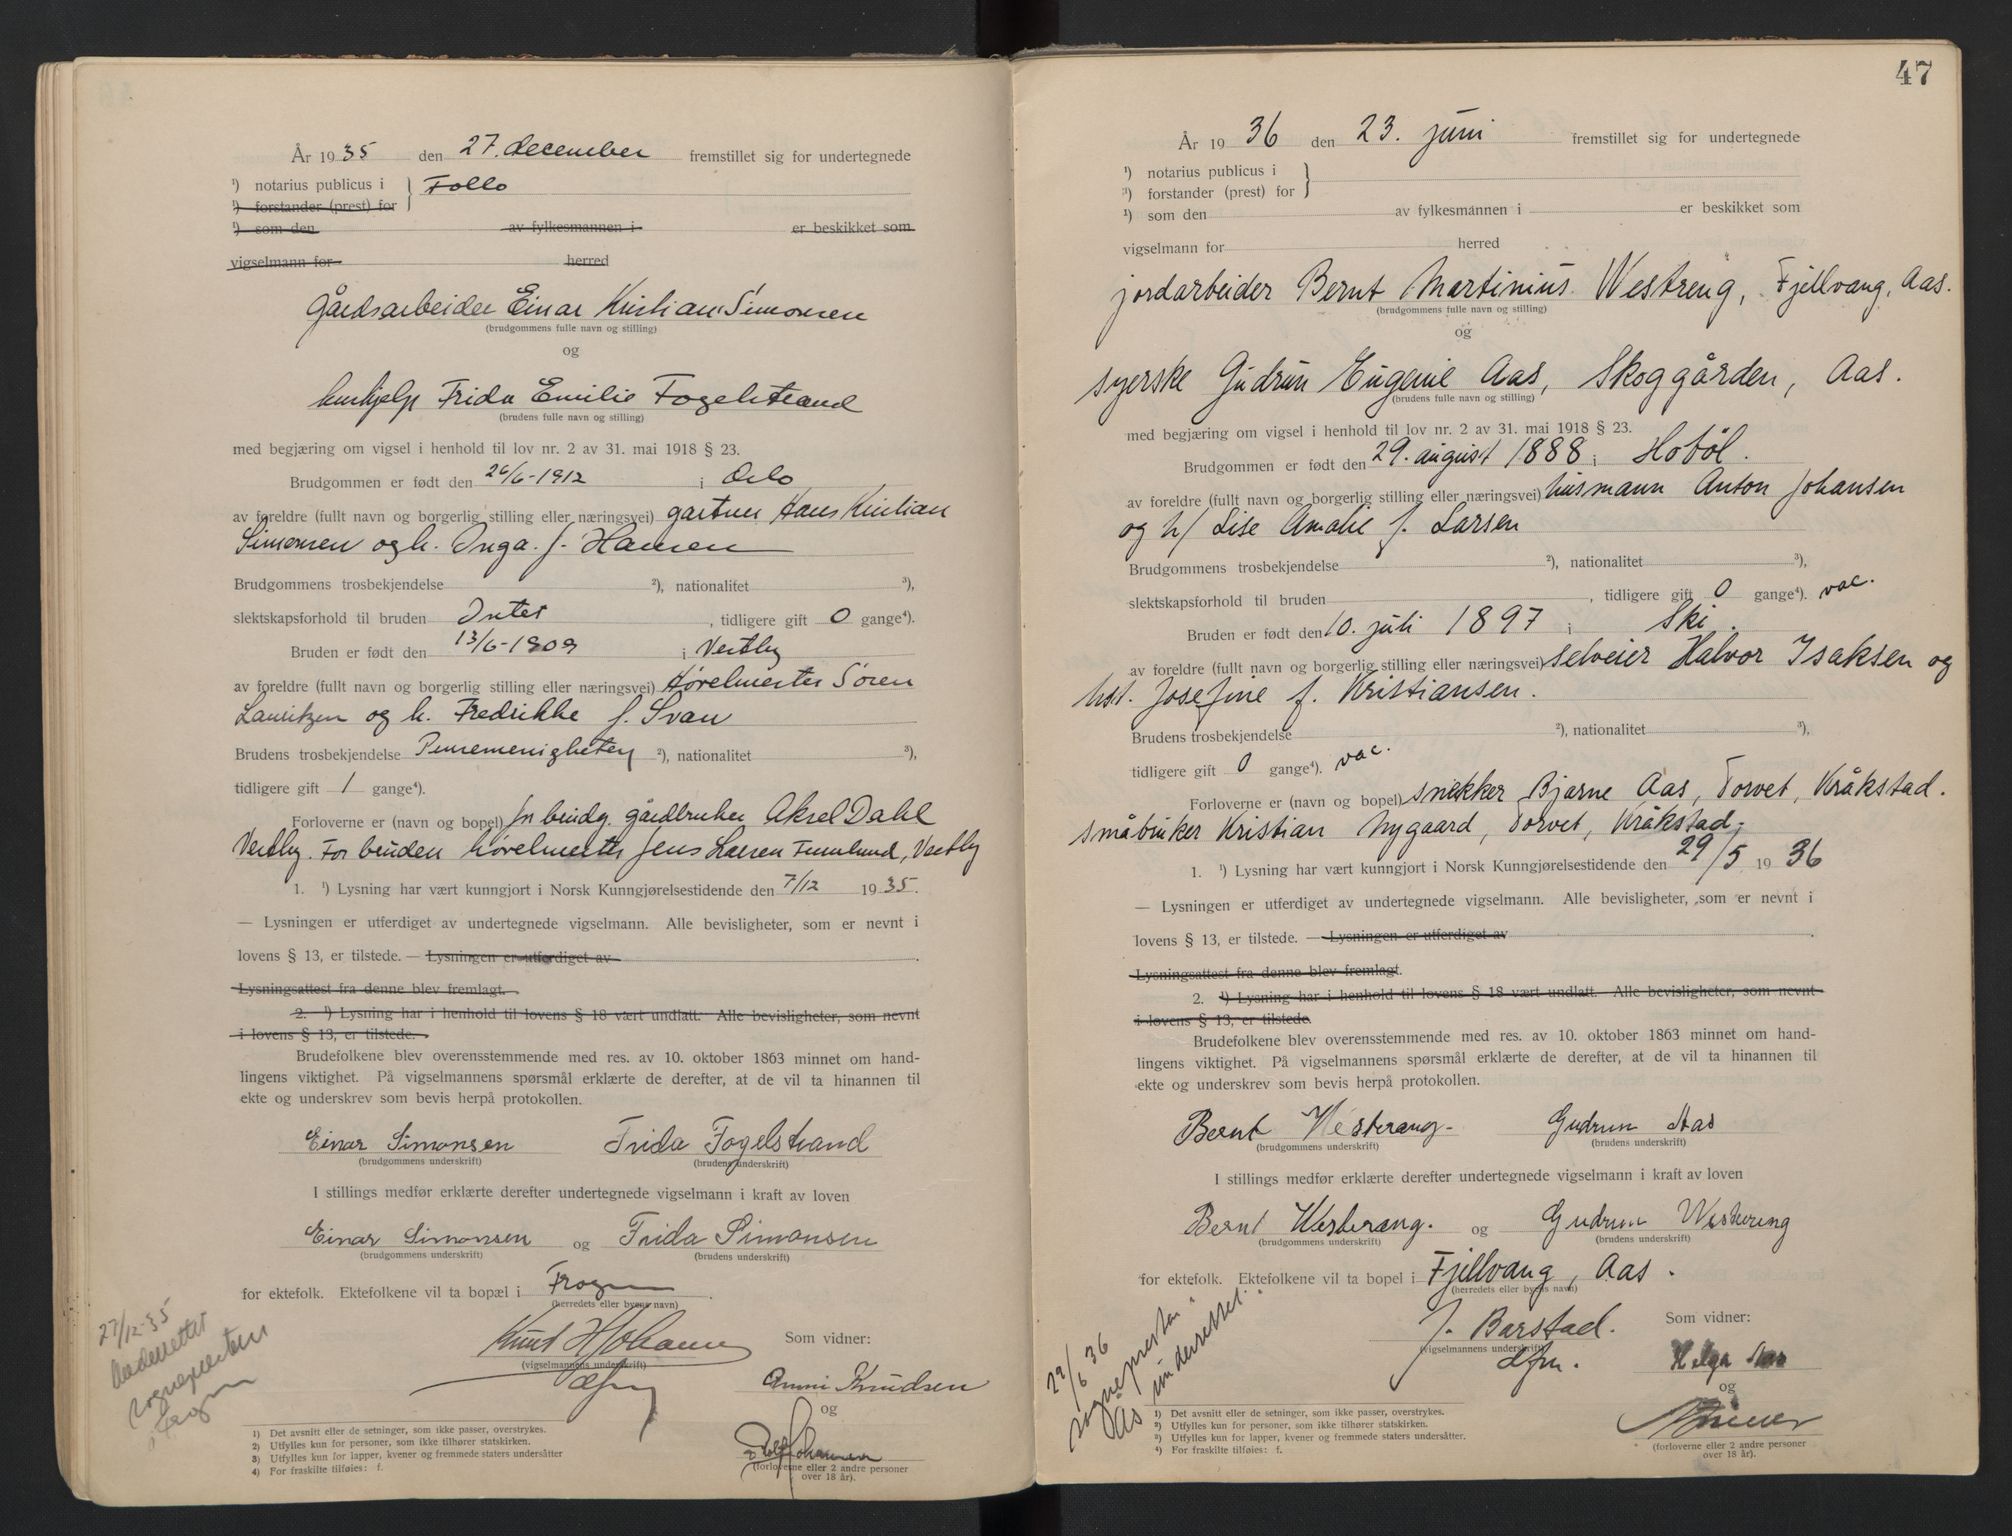 År 1935 den 27. december fremstillet sig for undertegnede
¹) notarius publicus i } Follo
¹) forstander (prest) for
¹) som den av fylkesmannen i er beskikket som
vigselmann for herred
Gårdsarbeider Einar Kristian Simonsen
(brudgommens fulle navn og stilling)
og
hushjelp Frida Emilie Fogelstrand
(brudens fulle navn og stilling)
med begjæring om vigsel i henhold til lov nr. 2 av 31. mai 1918 § 23.
Brudgommen er født den 26/6-1912 i Oslo
av foreldre (fullt navn og borgerlig stilling eller næringsvei) gartner Hans Kristian
Simonsen og h. Inga f. Hansen
Brudgommens trosbekjendelse ²), nationalitet ³),
slektskapsforhold til bruden Intet , tidligere gift 0 gange⁴).
Bruden er født den 13/6-1909 i Vestby
av foreldre (fullt navn og borgerlig stilling eller næringsvei) Høvelmester Søren
Lauritzen og h. Fredrikke f. Svan
Brudens trosbekjendelse Pinsemenigheten ²), nationalitet ³),
tidligere gift 1 gange⁴).
Forloverne er (navn og bopel) for brudg. gårdbruker Aksel Dahl
Vestby. For bruden høvelmester Jens Larsen , Vestby
1. ¹) Lysning har vært kunngjort i Norsk Kunngjørelsestidende den 7/12 1935.
— Lysningen er utferdiget av undertegnede vigselmann. Alle bevisligheter, som er nevnt i
lovens § 13, er tilstede. — Lysningen er utferdiget av .
Lysningsattest fra denne blev fremlagt.
2. ¹) Lysning har i henhold til lovens § 18 vært undlatt. Alle bevisligheter, som nevnt
i lovens § 13, er tilstede.
Brudefolkene blev overensstemmende med res. av 10. oktober 1863 minnet om hand-
lingens viktighet. På vigselmannens spørsmål erklærte de derefter, at de vil ta hinannen til
ekte og underskrev som bevis herpå protokollen.
Einar Simonsen Frida Fogelstrand
(brudgommens underskrift) (brudens underskrift)
I stillings medfør erklærte derefter undertegnede vigselmann i kraft av loven
Einar Simonsen og Frida Simonsen
(brudgommens underskrift) (brudens underskrift)
for ektefolk. Ektefolkene vil ta bopæl i Frogn .
(herredets eller byens navn)
Knut H Johansen Som vidner:
(vigselmannens underskrift)
dfm Anni Knudsen
og
Rolf Johansen
(forloverne eller 2 andre personer
over 18 år).
27/12-35
Underrettet
sognepresten
i Frogn
1) Det avsnitt eller de setninger, som ikke passer, overstrykes.
2) Utfylles kun for personer, som ikke tilhører statskirken.
3) Utfylles kun for lapper, kvener og fremmede staters undersåtter
4) For fraskilte tilføies: f.
47
År 1936 den 23. juni fremstillet sig for undertegnede
¹) notarius publicus i }
¹) forstander (prest) for
¹) som den av fylkesmannen i er beskikket som
vigselmann for herred
jordarbeider Bernt Martinius Westreng, Fjellvang, Aas.
(brudgommens fulle navn og stilling)
og
syerske Gudrun Eugenie Aas, Skoggården, Aas.
(brudens fulle navn og stilling)
med begjæring om vigsel i henhold til lov nr. 2 av 31. mai 1918 § 23.
Brudgommen er født den 29. august 1888 i Hobøl.
av foreldre (fullt navn og borgerlig stilling eller næringsvei) husmann Anton Johansen
og h/ Lise Amalie f. Larsen
Brudgommens trosbekjendelse ²), nationalitet ³),
slektskapsforhold til bruden , tidligere gift 0 gange⁴). vac.
Bruden er født den 10. juli 1897 i Ski.
av foreldre (fullt navn og borgerlig stilling eller næringsvei) selveier Halvor Isaksen og
hst. Josefine f. Kristiansen.
Brudens trosbekjendelse ²), nationalitet ³),
tidligere gift 0 gange⁴). vac.
Forloverne er (navn og bopel) snekker Bjarne Aas, Torvet, Kråkstad.
småbruker Kristian Nygaard, Torvet, Kråkstad.
1. ¹) Lysning har vært kunngjort i Norsk Kunngjørelsestidende den 29/5 1936
— Lysningen er utferdiget av undertegnede vigselmann. Alle bevisligheter, som er nevnt i
lovens § 13, er tilstede. — Lysningen er utferdiget av .
Lysningsattest fra denne blev fremlagt.
2. ¹) Lysning har i henhold til lovens § 18 vært undlatt. Alle bevisligheter, som nevnt
i lovens § 13, er tilstede.
Brudefolkene blev overensstemmende med res. av 10. oktober 1863 minnet om hand-
lingens viktighet. På vigselmannens spørsmål erklærte de derefter, at de vil ta hinannen til
ekte og underskrev som bevis herpå protokollen.
Bernt Westerang. Gudrun Aas
(brudgommens underskrift) (brudens underskrift)
I stillings medfør erklærte derefter undertegnede vigselmann i kraft av loven
Bernt Westerang. og Gudrun Westereng
(brudgommens underskrift) (brudens underskrift)
for ektefolk. Ektefolkene vil ta bopel i Fjellvang, Aas.
(herredets eller byens navn)
J. Barstad. Som vidner:
(vigselmannens underskrift)
dfm. Helga Aas
og
(forloverne eller 2 andre personer
over 18 år).
29/6 36
sognepresten i
Ås underrettet.
1) Det avsnitt eller de setninger, som ikke passer, overstrykes.
2) Utfylles kun for personer, som ikke tilhører statskirken.
3) Utfylles kun for lapper, kvener og fremmede staters undersåtter.
4) For fraskilte tilføies: f.